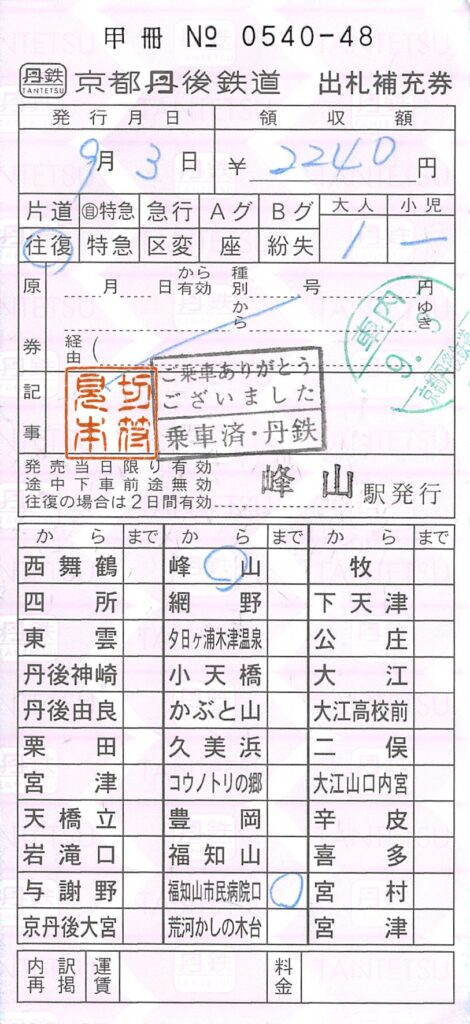 甲冊 № 0540-48
丹鉄 TANTETSU 京都丹後鉄道 出札補充券
発行月日 領収額
9月3日 ¥2240円
片道 自特急 急行 Aグ Bグ 大人 小児
往復 特急 区変 座 紛失 1 一
原券 月 日から有効 種別 号 円
から ゆき
経由 (
車内 9.-3
記事
見本 切符
ご乗車ありがとう
ございました
乗車済・丹鉄
発売当日限り有効
途中下車前途無効
往復の場合は2日間有効
峰山駅発行
から まで から まで から まで
西舞鶴 峰山 牧
四所 網野 下天津
東雲 夕日ヶ浦木津温泉 公庄
丹後神崎 小天橋 大江
丹後由良 かぶと山 大江高校前
栗田 久美浜 二俣
宮津 コウノトリの郷 大江山口内宮
天橋立 豊岡 辛皮
岩滝口 福知山 喜多
与謝野 福知山市民病院口 宮村
京丹後大宮 荒河かしの木台 宮津
内訳再掲 運賃 料金